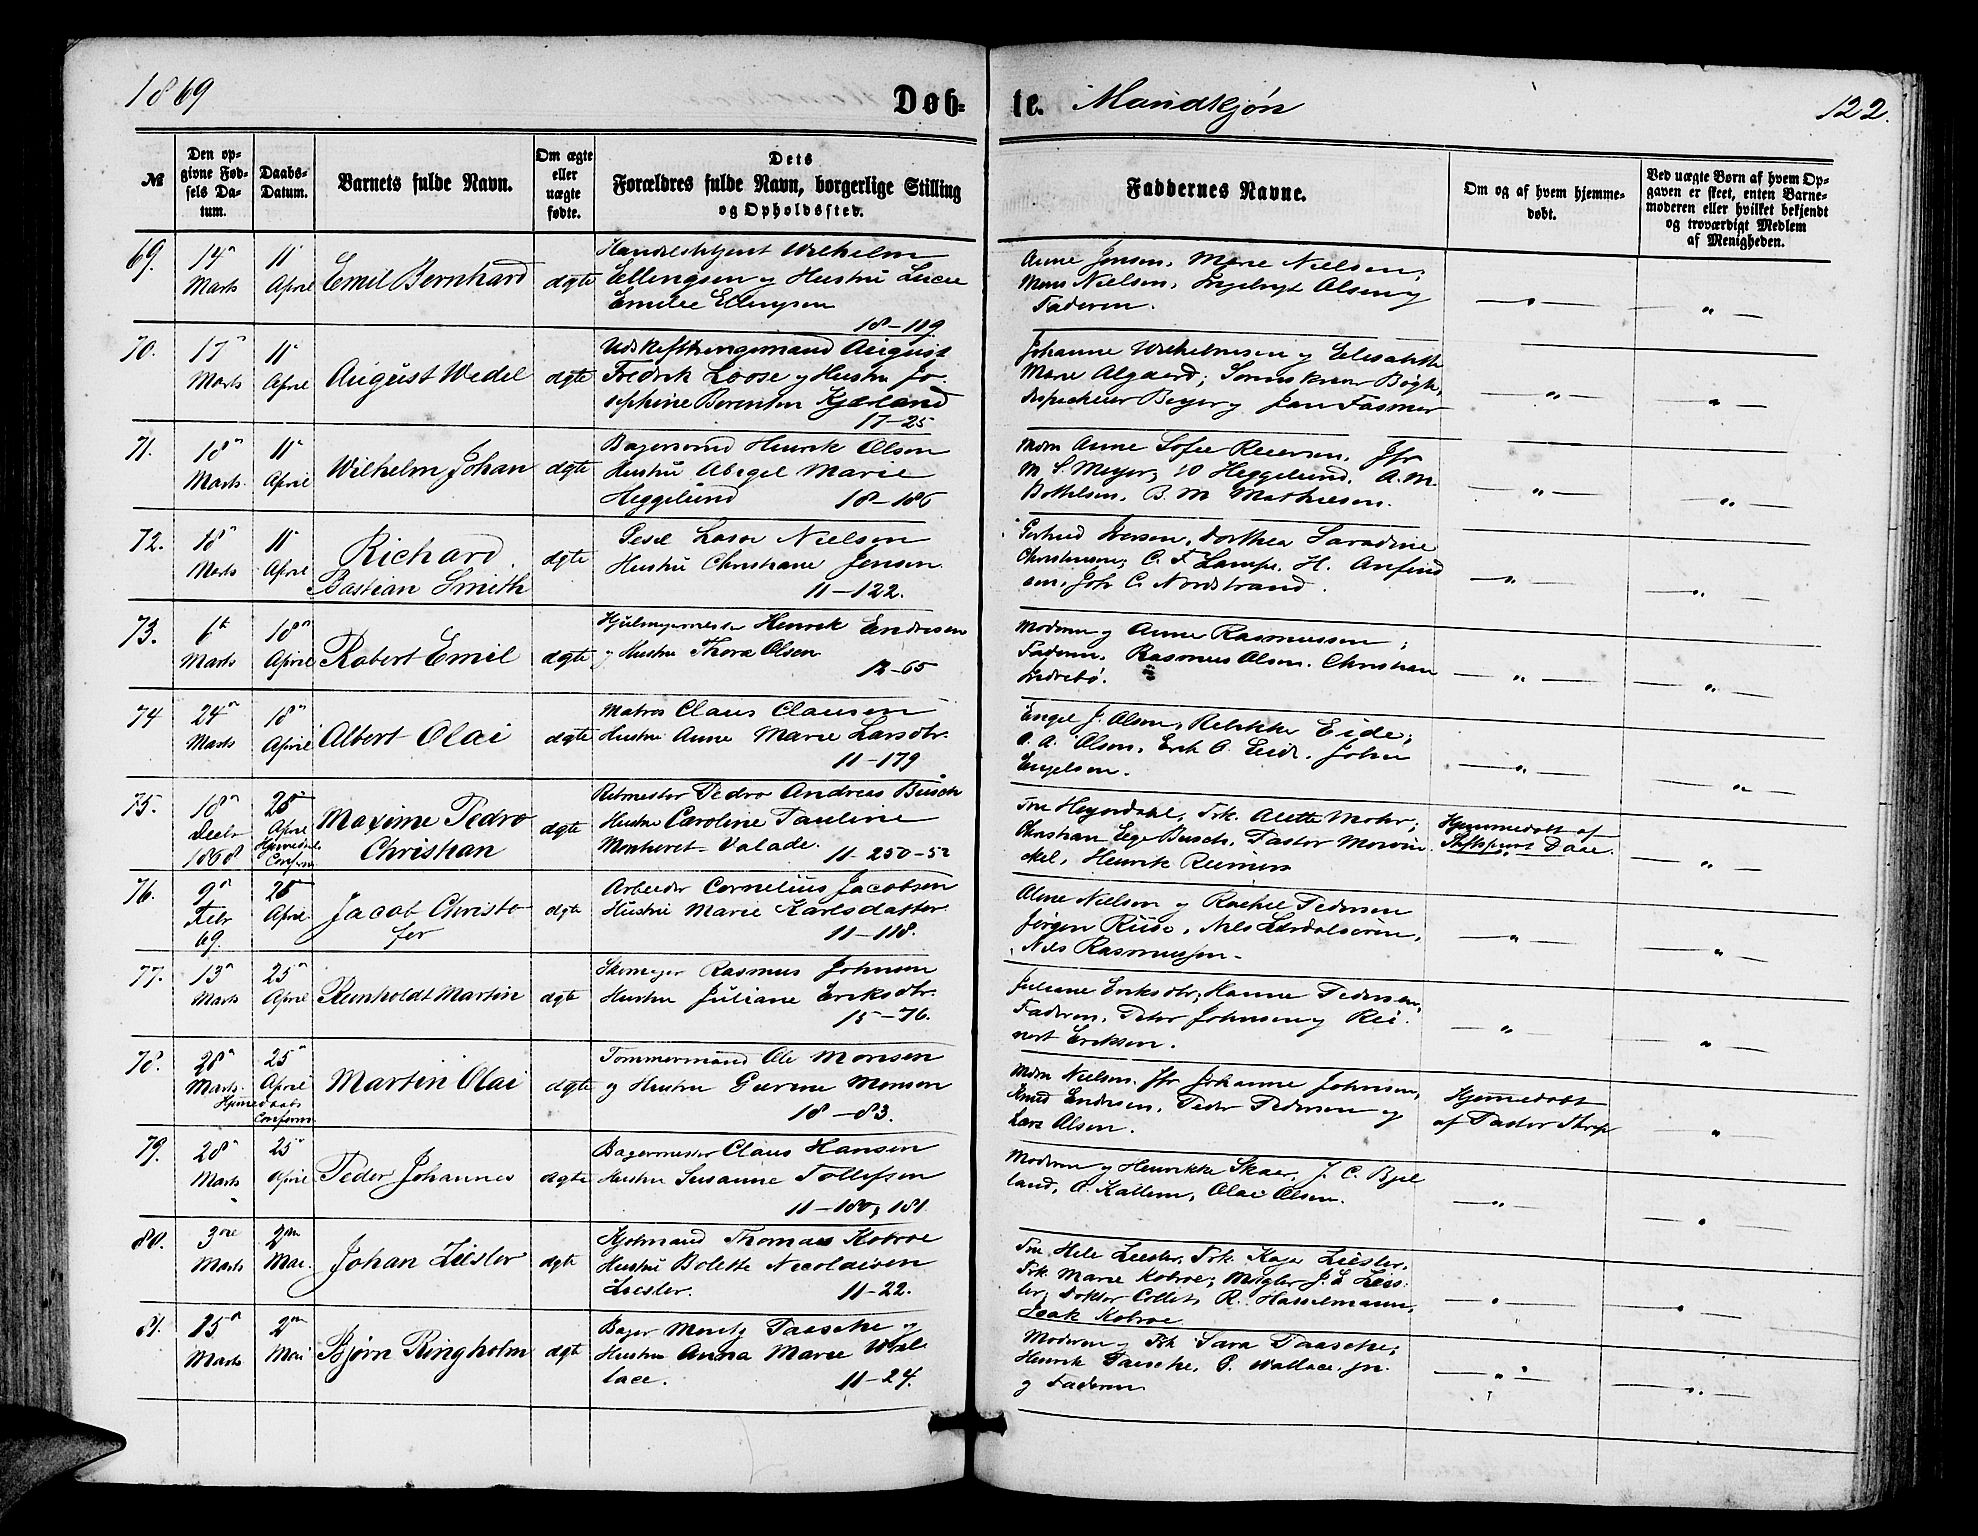 1869
Døb-
te.
Mandkjøn
122.
№
Den op-
givne Fød-
sels Da-
tum.
Daabs-
Datum.
Barnets fulde Navn.
Om ægte
eller
uægte
fødte.
Dets
Forældres fulde Navn, borgerlige Stilling
og Opholdssted.
Faddernes Navne.
Om og af hvem hjemme-
døbt.
Ved uægte Børn af hvem Op-
gaven er skeet, enten Barne-
moderen eller hvilket bekjendt
og troværdigt Medlem
af Menigheden.
69.
14n
Marts
11
April
Emil Bernhard
ægte
Wilhelm
Ellingsen og Hustru Lucie
Emilie Ellingsen
18-189
Anne Jensen, Marie Nielsen;
Mons Nielsen, Olsen og
Faderen.
70.
17n
Marts
11
April
August Wedel
ægte
August
Fredrik Loose og Hustru Jo-
sephine Berentsen Kjærland
17-25
Johanne Wilhelmsen og Elisabeth
Marie Algaard;
Beyer og Jan Fasmer
71.
18n
Marts.
11
April
Wilhelm Johan
ægte
Bagersvend Henrik Olsen
Hustru Abigel Marie
Heggelund
18-186
Mdm Anne Sofie Jfr
M. S. Meyer; Heggelund, A. M.
B. M. Mathiesen.
72.
18n
Marts
11
April
Richard
Bastian Smith
ægte
Lasse Nielsen
Hustru Christiane Jensen
11-122.
Gertrud Iversen, Dorthea Saradine
Christensen; C. F. Lampe, H. Anfind
sen, Joh C. Nordstrand.
73.
6te
Marts
18n
April
Robert Emil
ægte
Henrik Endresen
og Hustru Thora Olsen
12-65
Moderen og Anne Rasmussen;
Faderen, Rasmus Olsen, Christian
Indrebø.
74
24n
Marts
18n
April
Albert Olai
ægte
Matros Claus Clausen
Hustru Anne Marie Larsdtr.
11-179
Engel J. Olsen, Rebekke Eide;
O. A. Olsen, Erik A. Eide, John
Engelsen.
75.
18n
Decbr
1868
25n
April
Hjemmedaab
Conferm
Maxime Pedro
Christian
ægte
Ritmester Pedro Andreas Büsch
Hustru Caroline Pauline
Valade.
11-250-52
Fru Heyerdahl, Frk. Alette Mohr;
Christian Ege Büsch, Pastor Morwin
ckel, Henrik Reimers
Hjemmedøbt af
Stiftsprovst Daae.
76.
9n
Febr
69.
25
April.
Jacob Christo
fer
ægte
Arbeider Cornelius Jacobsen
Hustru Marie Karlsdatter
11-118.
Nielsen og Rachel Pedersen
Jørgen Riise, Nils
Nils Rasmussen.
77.
13n
Marts
25n
April
Reinholdt Martin
ægte
Skomager Rasmus Johnsen
Hustru Juliane Eriksdtr.
15-76.
Juliane Eriksdtr, Hanne Pedersen,
Faderen, Peter Johnsen og Rei-
nert Eriksen.
78.
28n
Marts.
25n
April
Hjemmedaabs
Conferm
Martin Olai
ægte
Tømmermand Ole Monsen
og Hustru Gurine Monsen
18-83.
Mdm Nielsen, Jfr Johanne Johnsen,
Knud Endresen, Peder Pedersen og
Lars Olsen.
Hjemmedøbt
af Pastor
79.
28n
Marts
25n
April
Peder Johannes
ægte
Bagermester Claus Hansen
Hustru Susanne Tollefsen
11-180, 181
Moderen og Henrikke Skaar, J. C. Bjel
land, O. Kallem, Olai Olsen.
80.
3die
Marts
2den
Mai.
Johan Ziesler
ægte
Kjøbmand Thomas Kobroe
Hustru Bolette Nicolaisen
Ziesler.
11-22.
Fru Hele Ziesler, Frk. Kaja Ziesler,
Frk. Marie Kobroe; Mægler J. L. Zies-
ler, Doktor Collet, R. Hasselmann,
Isak Kobroe
81.
15n
Marts
2den
Mai
Bjørn Ringholm
ægte
Bager Moritz Paasche og
Hustru Anna Marie Wal
lace.
11-24.
Moderen og Frk Sara Paasche;
Henrik Paasche, P. Wallace, jn.
og Faderen